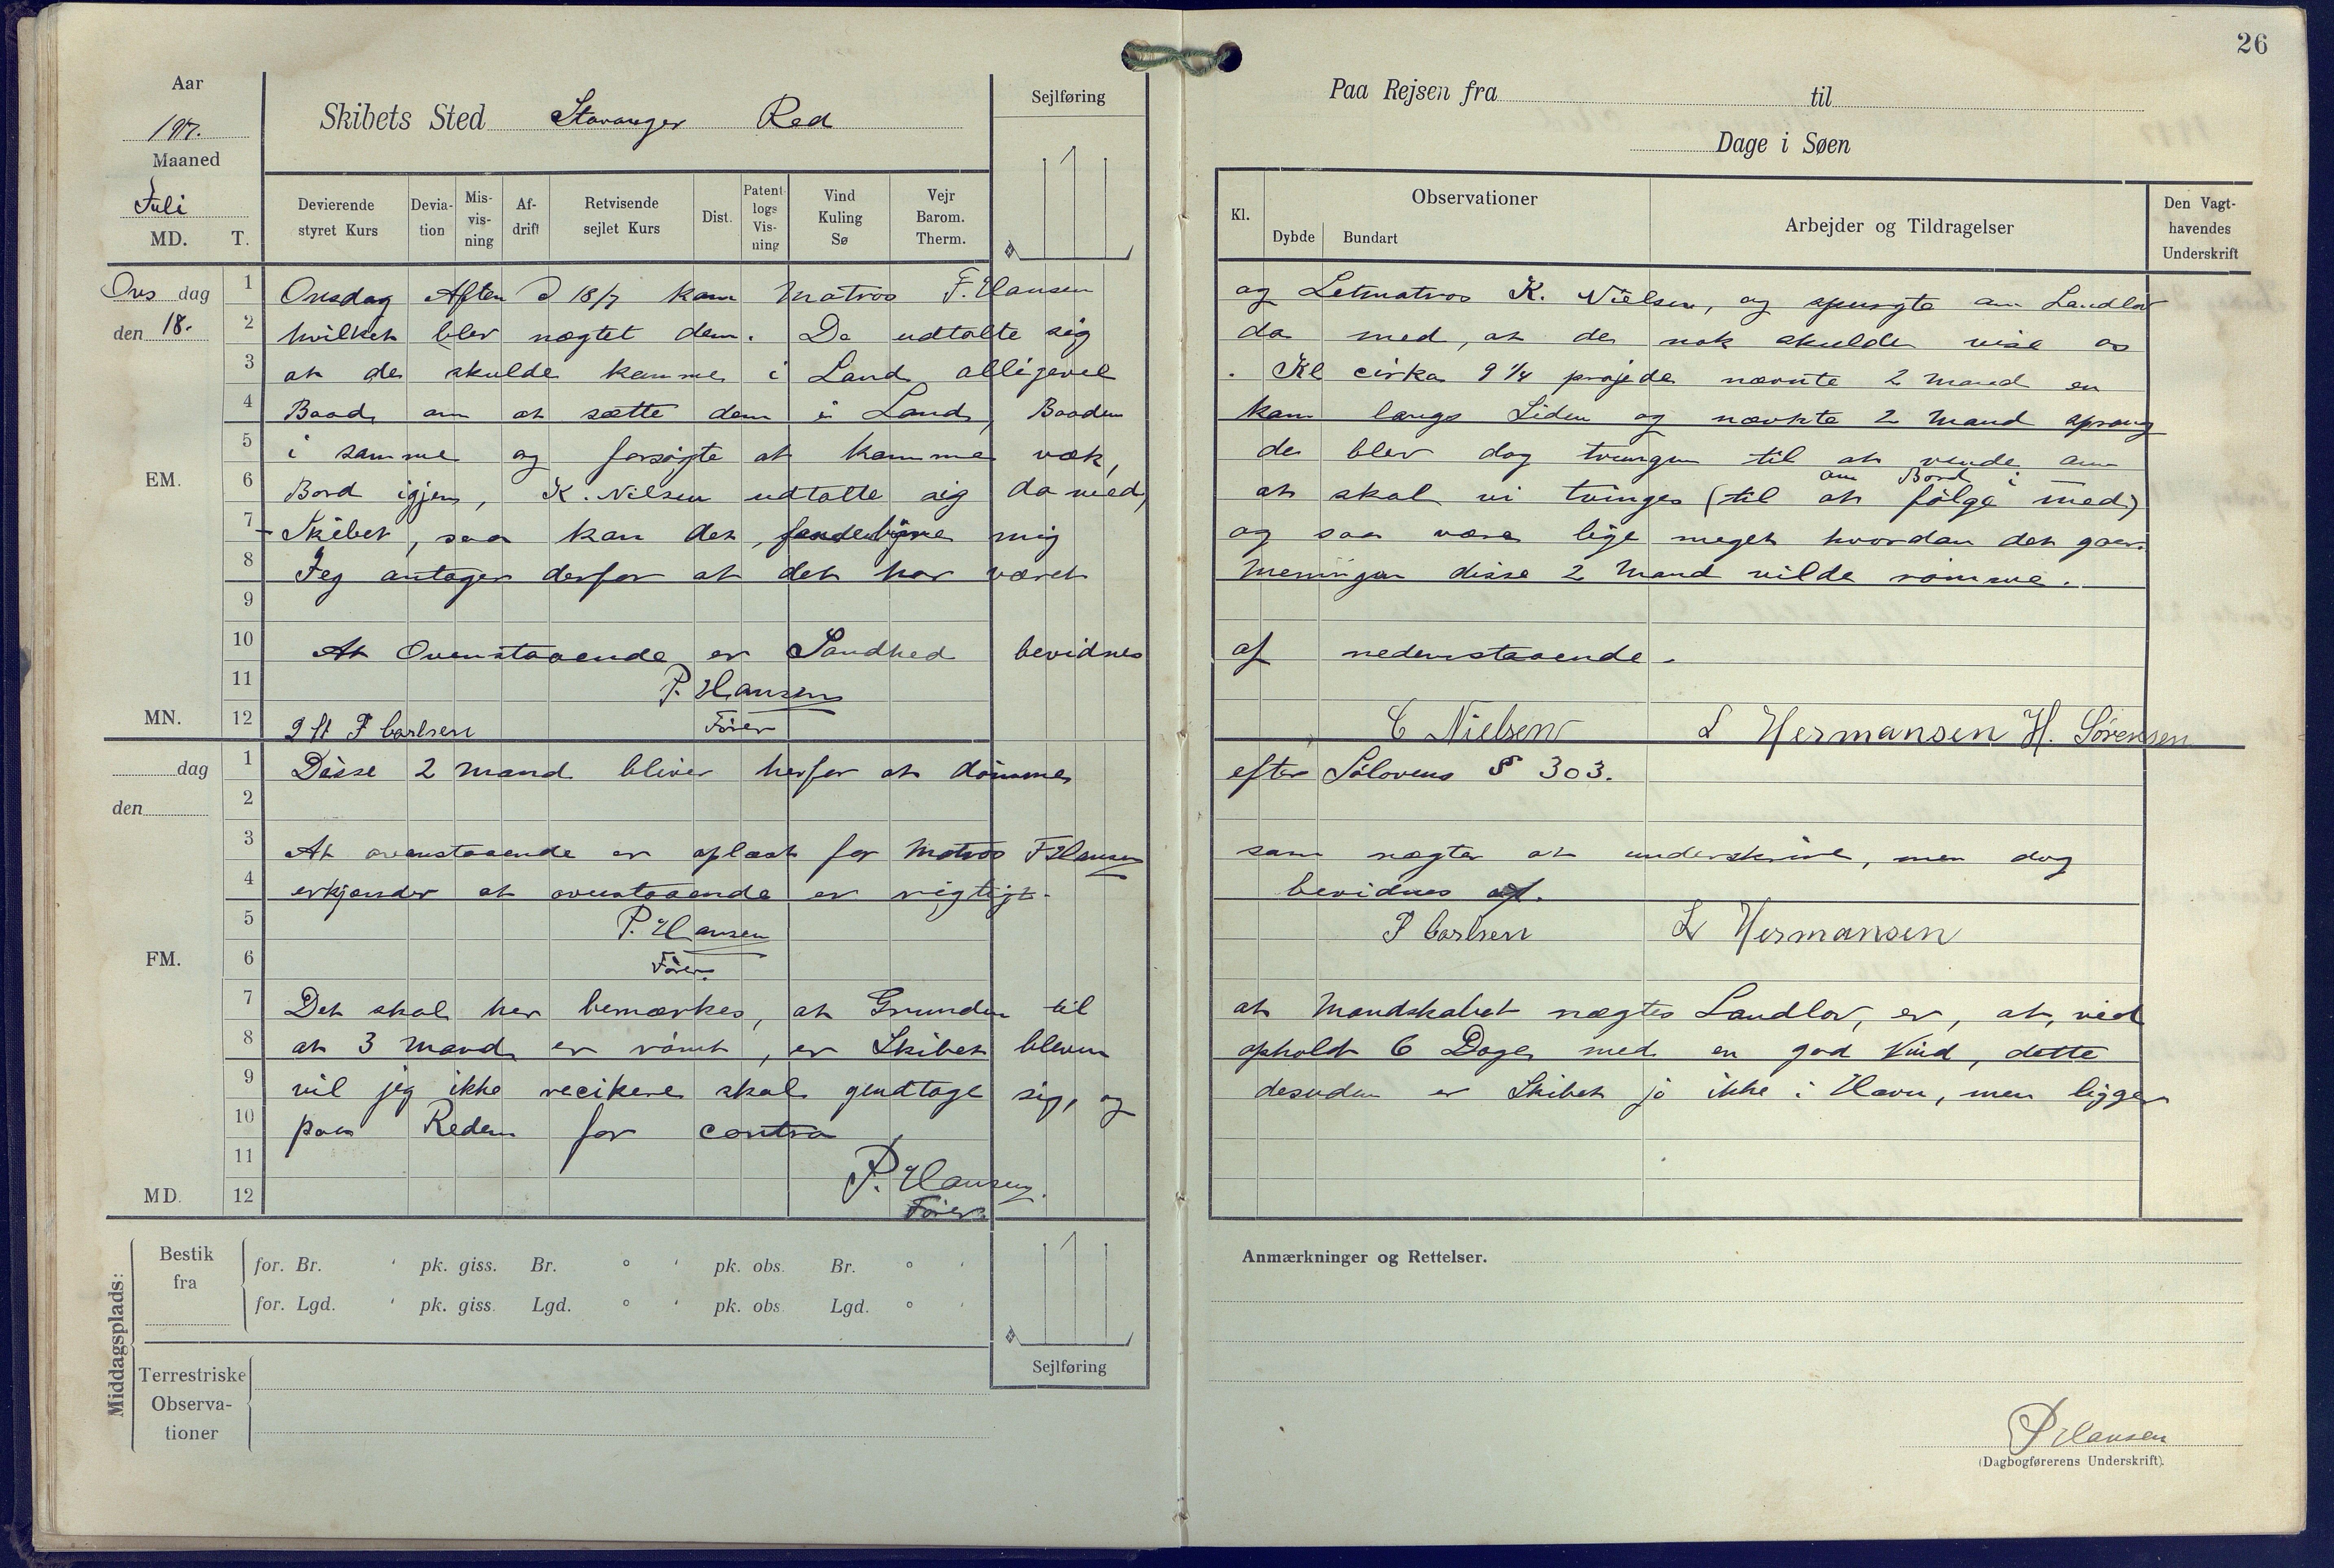 26
Aar
1917.
Maaned
Juli
MD. T.
Skibets Sted Stavanger Red
Sejlføring
Paa Rejsen fra til
Dage i Søen
Devierende styret Kurs
Deviation
Misvisning
Afdrift
Retvisende sejlet Kurs
Dist.
Patent logs Visning
Vind Kuling Sø
Vejr Barom. Therm.
Kl.
Observationer
Dybde Bundart
Arbejder og Tildragelser
Den Vagthavendes Underskrift
Ons dag
den 18.
1 Onsdag Aften d 18/7 kom Matros F. Hansen og Letmatros K. Nielsen, og spurgte om Landlov
2 hvilket blev nægtet dem. De udtalte sig da med, at de nok skulde vise os
3 at de skulde komme i Land alligevel . Kl cirka 9 1/4 prajede nævnte 2 Mand en
4 Baad om at sætte dem i Land, Baaden kom langs Siden og nævnte 2 Mand sprang
5 i samme og forsøgte at komme væk, de blev dog tvungen til at vende om
EM.
om Bord i
6 Bord igjen, K. Nilsen udtalte sig da med, at skal vi tvinges (til at følge med)
7 Skibet, saa kan det mig og saa være lige meget hvordan det gaar.
8 Jeg antager derfor at det har været Meningen disse 2 Mand vilde rømme.
9
10 At Ovenstaaende er Sandhed bevidnes af nedenstaaende.
11 P. Hansen
MN. 12 P Carlsen Fører C Nielsen L Hermansen H. Sørensen
dag
den
1 Disse 2 Mand bliver herfor at dømme efter Sølovens § 303.
2
3 At ovenstaaende er oplæst for Matros F Hansen som nægter at underskrive, men dog
4 erkjender at ovenstaaende er rigtigt. bevidnes af.
5 P. Hansen P Carlsen L Hermansen
FM. 6 Fører.
7 Det skal her bemærkes, at Grunden til at Mandskabet nægtes Landlov, er, at, ved
8 at 3 Mand er rømt, er Skibet bleven opholdt 6 Dage med en god Vind, dette
9 vil jeg ikke recikere skal gendtage sig, og desuden er Skibet jo ikke i Havn, men ligger
10 paa Reden for contra
11 P. Hansen.
MD. 12 Fører
Middagsplads:
Bestik fra
for. Br. ' pk. giss. Br. ° ' pk. obs. Br. ° '
for. Lgd. ' pk. giss. Lgd. ° ' pk. obs. Lgd. ° '
Sejlføring
Terrestriske Observationer
Anmærkninger og Rettelser.
P Hansen
(Dagbogførerens Underskrift).